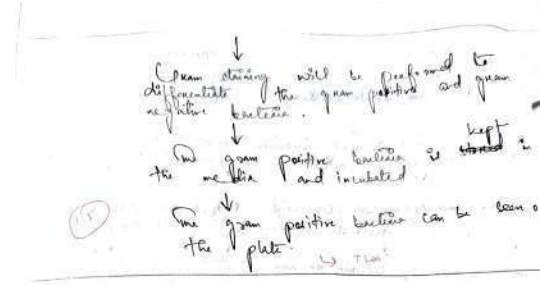 ↓
Gram staining will be performed to
differentiate the gram positive and gram
negative bacteria.
↓
The gram positive bacteria is kept in
the media and incubated.
↓
The gram positive bacteria can be seen o
the plate.